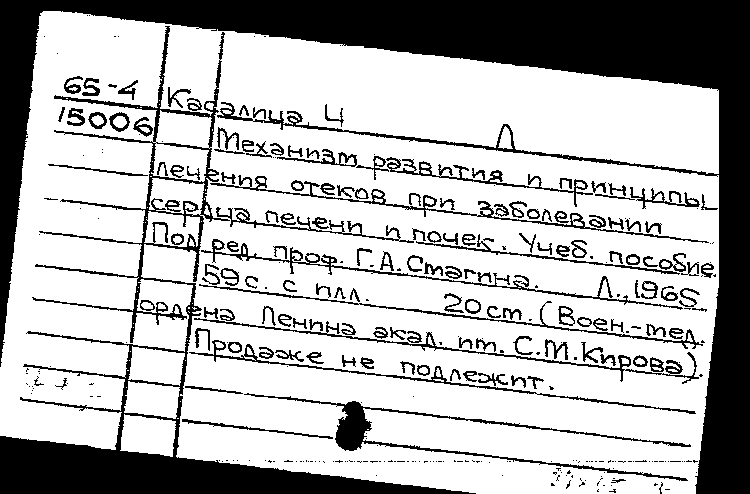 65-4 Касалица, Ч
15006
Л
Механизм развития и принципы
лечения отеков при заболевании
сердца, печени и почек. Учеб. пособие.
Под ред. проф. Г.А. Смагина. Л., 1965
59 с. с илл. 20 см. (Воен.-мед.
ордена Ленина акад. им. С.М.Кирова).
Продаже не подлежит.